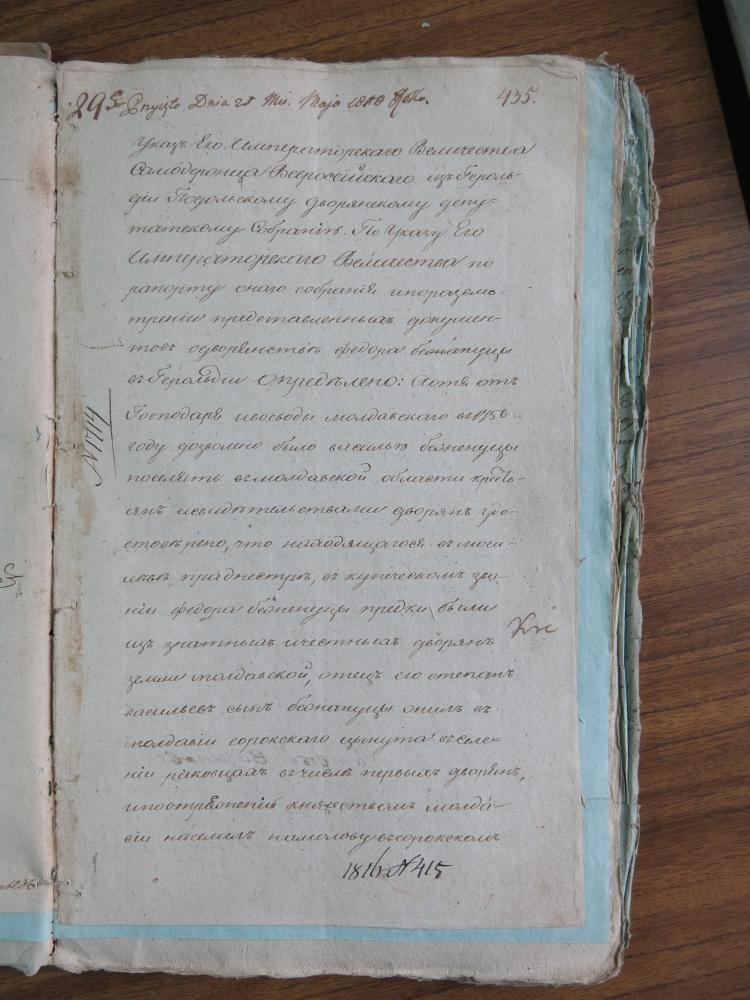 29 Dnia 21 Maja 1808 Roku. 435.
Указъ Его Императорскаго Величества
Самодержца Всероссійскаго изъ Героль-
діи Подольскому дворянскому депу-
татскому Собранію. По Указу Его
Императорскаго Величества по
рапорту онаго собранія и поразсмо-
треніи представленныхъ докумен-
товъ одворянствѣ федора
въ Герольдіи опредѣлено: Хотя отъ
Господаря ивоеводы молдавскаго въ 1756
году дозволено было василью
поселять въмолдавской области кресть-
янъ исвидѣтельствами дворянъ удо-
стовѣрено, что находящагося въ моги-
левѣ приднестрѣ, въ купѣческомъ зва-
ніи федора предки были
изъ знатныхъ ичестныхъ дворянъ
земли молдавской, отецъ его степанъ
васильевъ сынъ жилъ въ
молдавіи сорокскаго цынута въселе-
ніи раковцахъ въчислѣ первыхъ дворянъ,
княжествомъ молда-
віи населилъ въсорокскомъ
N 1714
1816 N 415